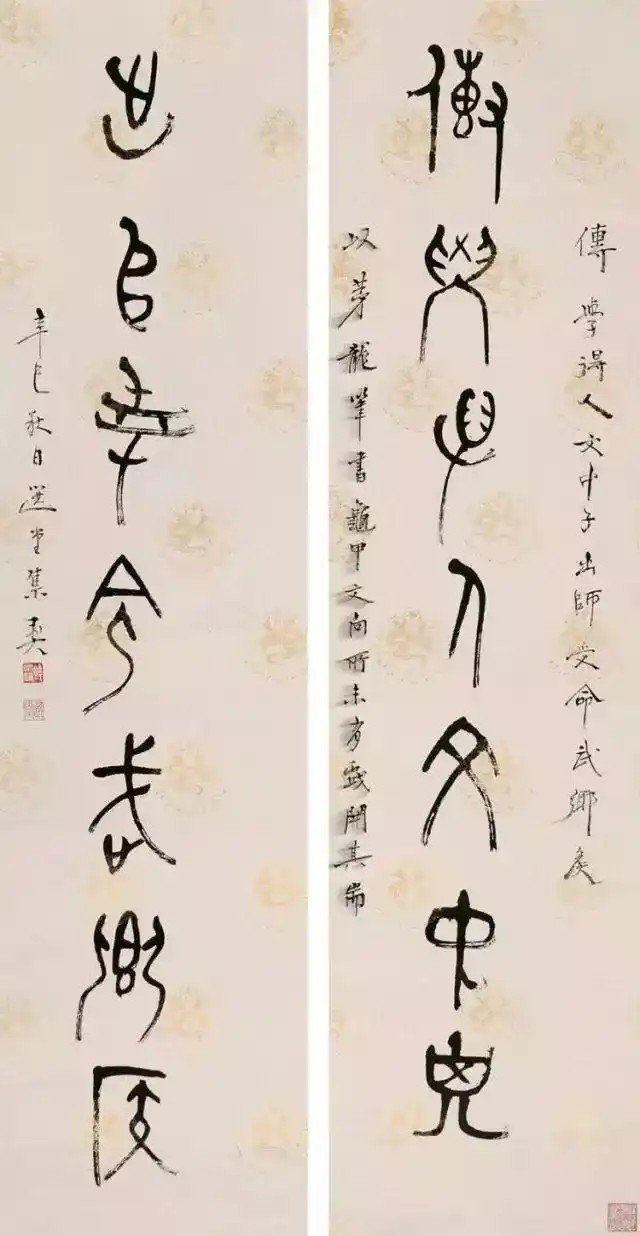 傳學得人文中子出師受命武鄉侯
傳學得人文中子
以茅龍筆書龜甲文向所未有戲開其耑
出師受命武鄉侯
辛巳秋日選堂集契